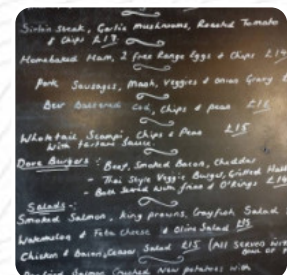 Sirloin Steak, Garlic mushrooms, Roasted Tomato
& Chips £17
Homebaked Ham, 2 free Range Eggs & Chips £14
Pork Sausages, Mash, Veggies & onion Gravy
Beer Battered Cod, Chips & peas
Wholetail Scampi, Chips & Peas £15
with Tartare Sauce.
Burgers : Beef, Smoked Bacon, Cheddar
- Thai Style Veggie Burger, Grilled
- Both Served with fries & O'Rings £14
Salads :-
Smoked Salmon, King prawns, Crayfish Salad
Watermelon & Feta Cheese & Olive Salad £15
Chicken & Bacon, Caesar Salad £15 (All SERVED WITH
Salmon Crushed New potatoes with